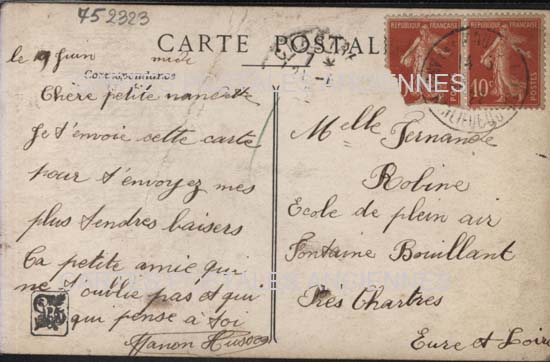 752323
CARTE POSTALE
le 9 juin midi
Correspondance
Chère petite nanette
Je t'envoie cette carte
pour t'envoyez mes
plus tendres baisers
Ta petite amie qui
ne t'oublie pas et qui
qui pense à toi
Manon
RÉPUBLIQUE FRANÇAISE
RÉPUBLIQUE FRANÇAISE
10c
POSTES
Melle Fernande
Robine
Ecole de plein air
Fontaine Bouillant
Près Chartres
Eure et Loire
CARTES POSTALES ANCIENNES